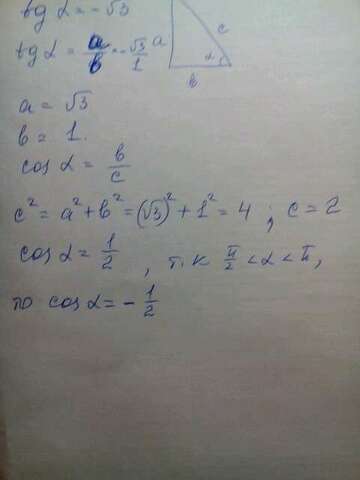 tg α = -√3
tg α = a/b = -√3/1
a
c
α
b
a = √3
b = 1.
cos α = b/c
c² = a² + b² = (√3)² + 1² = 4 ; c = 2
cos α = 1/2 , т.к π/2 < α < π,
то cos α = - 1/2